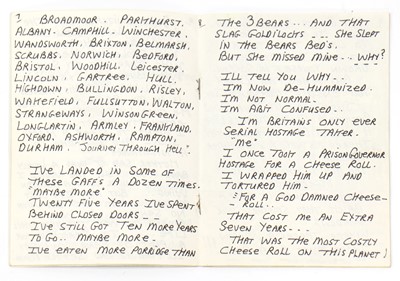 3 BROADMOOR. PARKHURST.
ALBANY. CAMPHILL. WINCHESTER.
WANDSWORTH. BRIXTON. BELMARSH.
SCRUBBS. NORWICH. BEDFORD.
BRISTOL. WOODHILL. LEICESTER.
LINCOLN. GARTREE. HULL.
HIGHDOWN. BULLINGDON. RISLEY.
WAKEFIELD. FULLSUTTON. WALTON.
STRANGEWAYS. WINSON GREEN.
LONGLARTIN. ARMLEY. FRANKLAND.
OXFORD. ASHWORTH. RAMPTON.
DURHAM. "JOURNEY THROUGH HELL".
I'VE LANDED IN SOME OF
THESE GAFFS A DOZEN TIMES.
"MAYBE MORE"
TWENTY FIVE YEARS I'VE SPENT
BEHIND CLOSED DOORS --
I'VE STILL GOT TEN MORE YEARS
TO GO.. MAYBE MORE.
I'VE EATEN MORE PORRIDGE THAN
THE 3 BEARS... AND THAT
SLAG GOLDILOCKS --- SHE SLEPT
IN THE BEARS BED'S.
BUT SHE MISSED MINE -- WHY?
I'LL TELL YOU WHY --
I'M NOW DE-HUMANIZED.
I'M NOT NORMAL.
I'M ABIT CONFUSED..
I'M BRITAINS ONLY EVER
SERIAL HOSTAGE TAKER.
"ME"
I ONCE TOOK A PRISON GOVERNOR
HOSTAGE FOR A CHEESE ROLL.
I WRAPPED HIM UP AND
TORTURED HIM -
FOR A GOD DAMNED CHEESE-
ROLL..
THAT COST ME AN EXTRA
SEVEN YEARS ---
THAT WAS THE MOST COSTLY
CHEESE ROLL ON THIS PLANET!